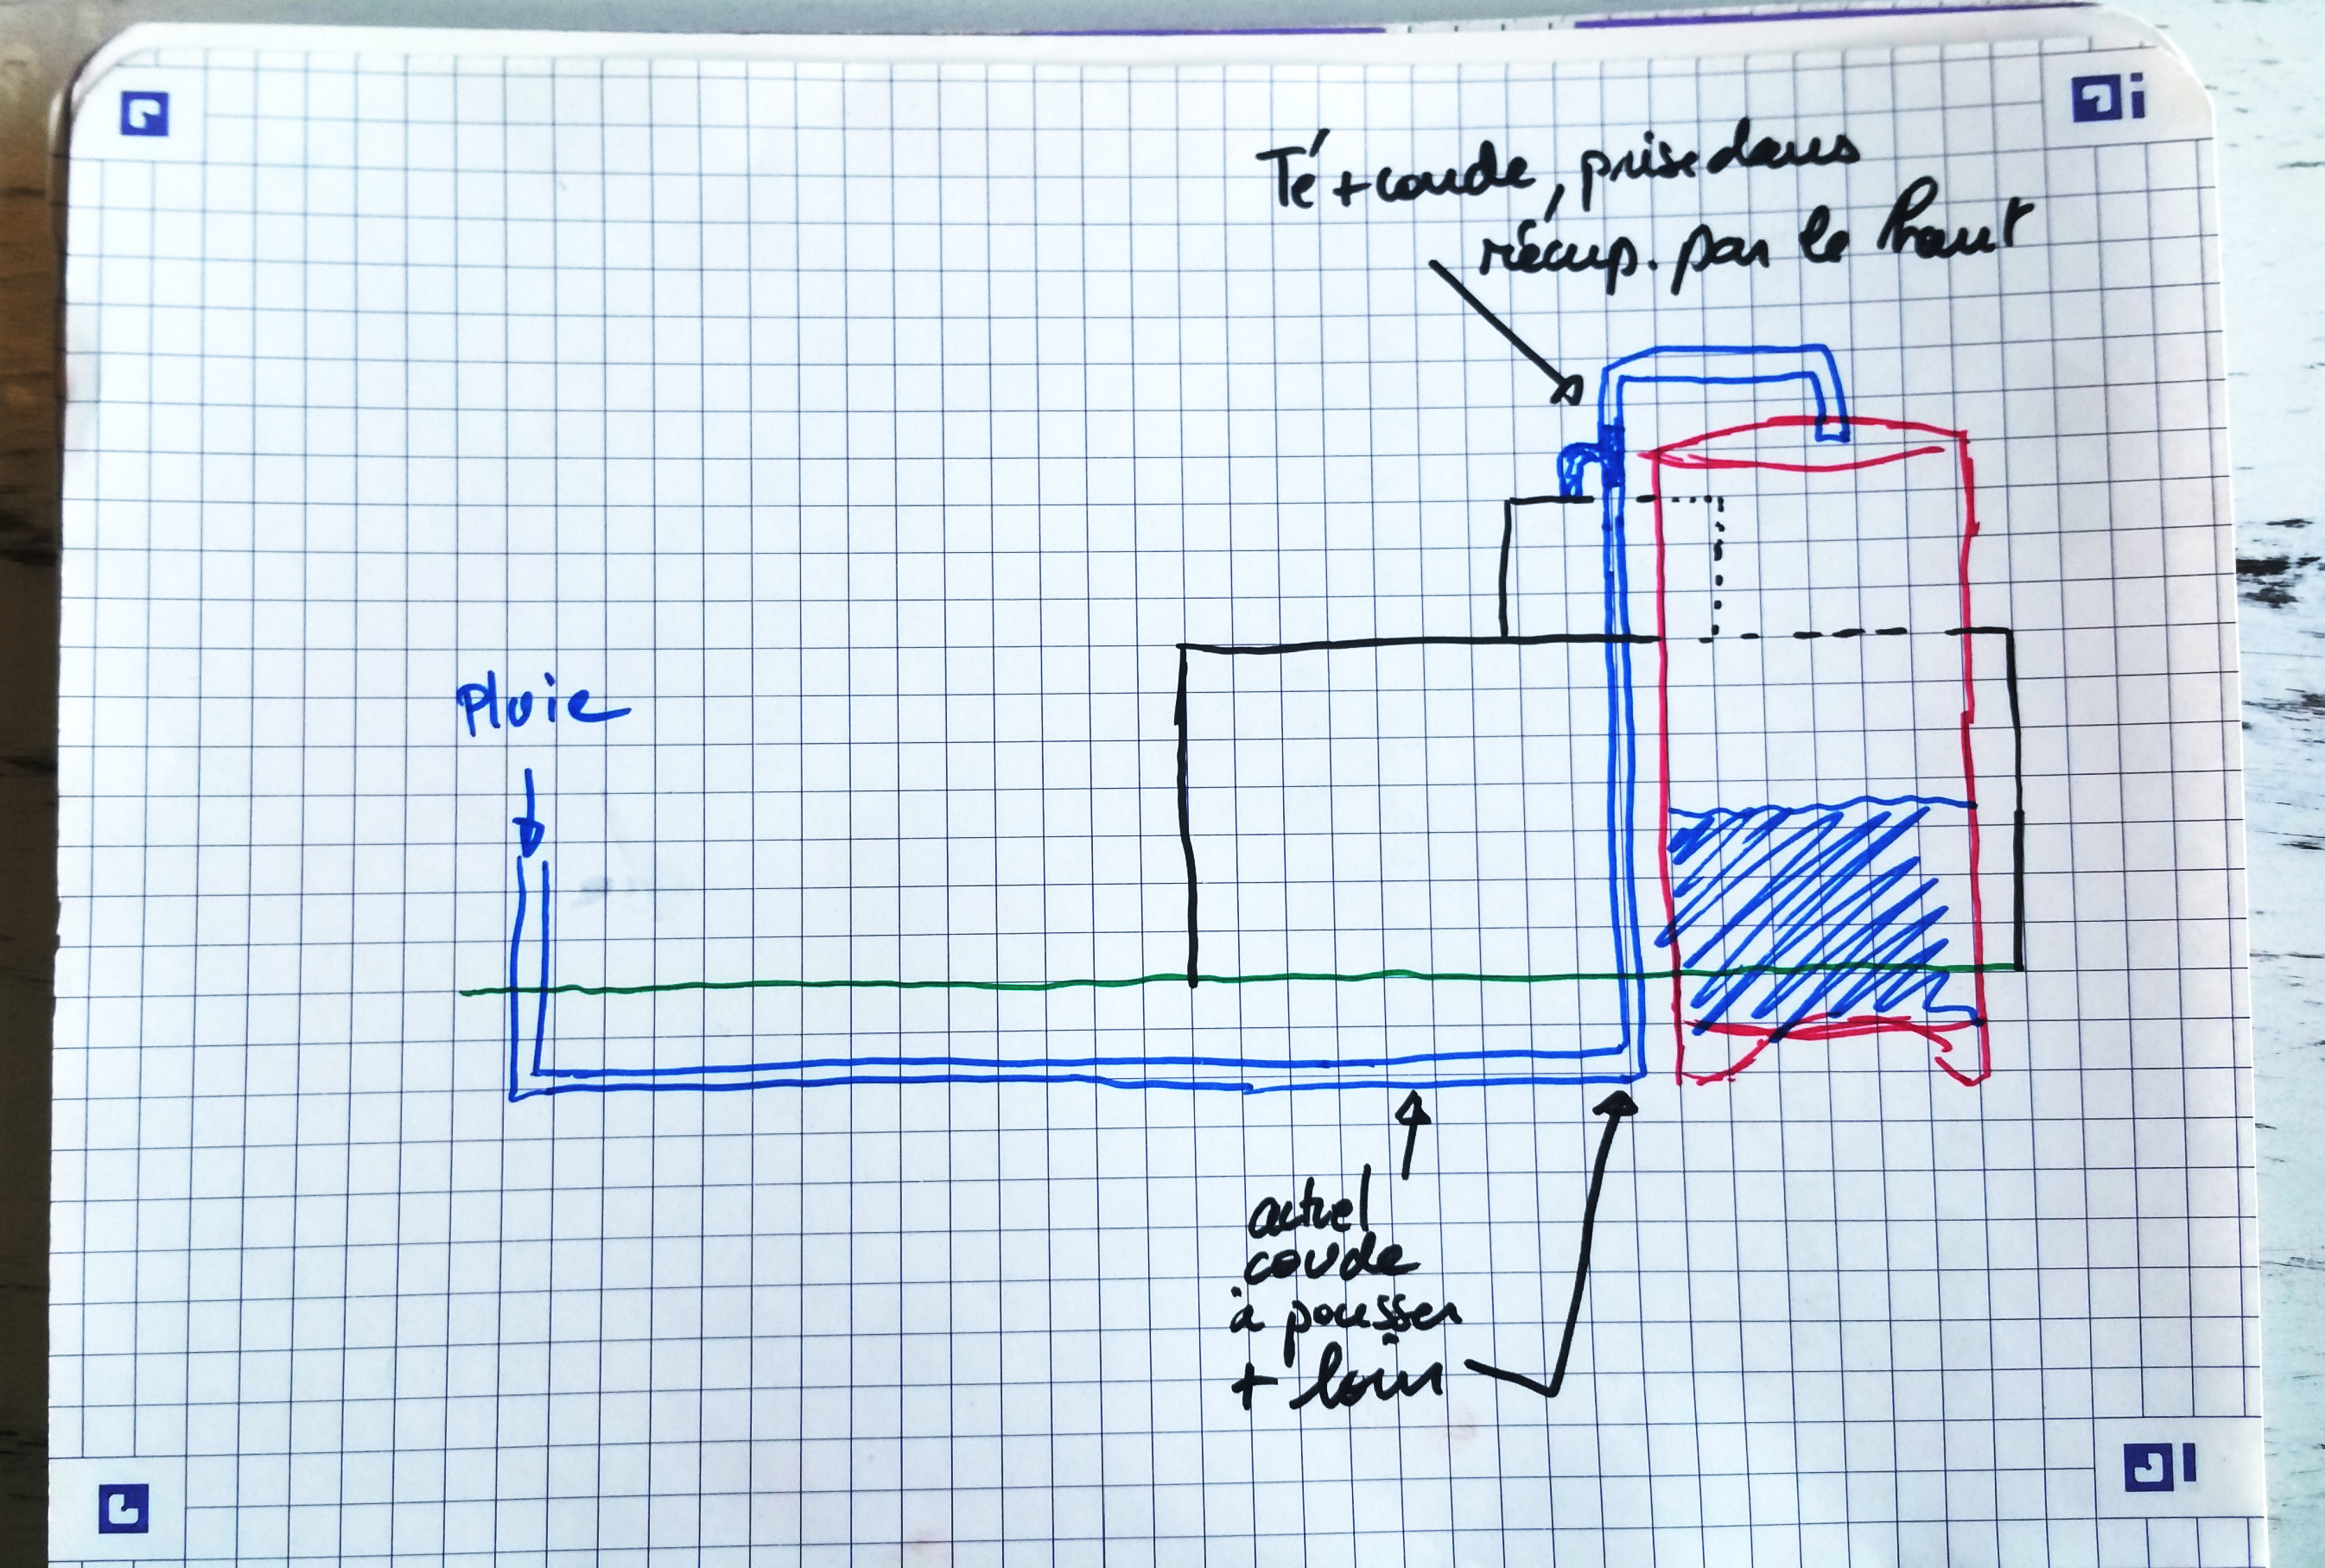 Té + coude, prise dans
récup. par le haut
Pluie
actuel
coude
à pousser
+ loin